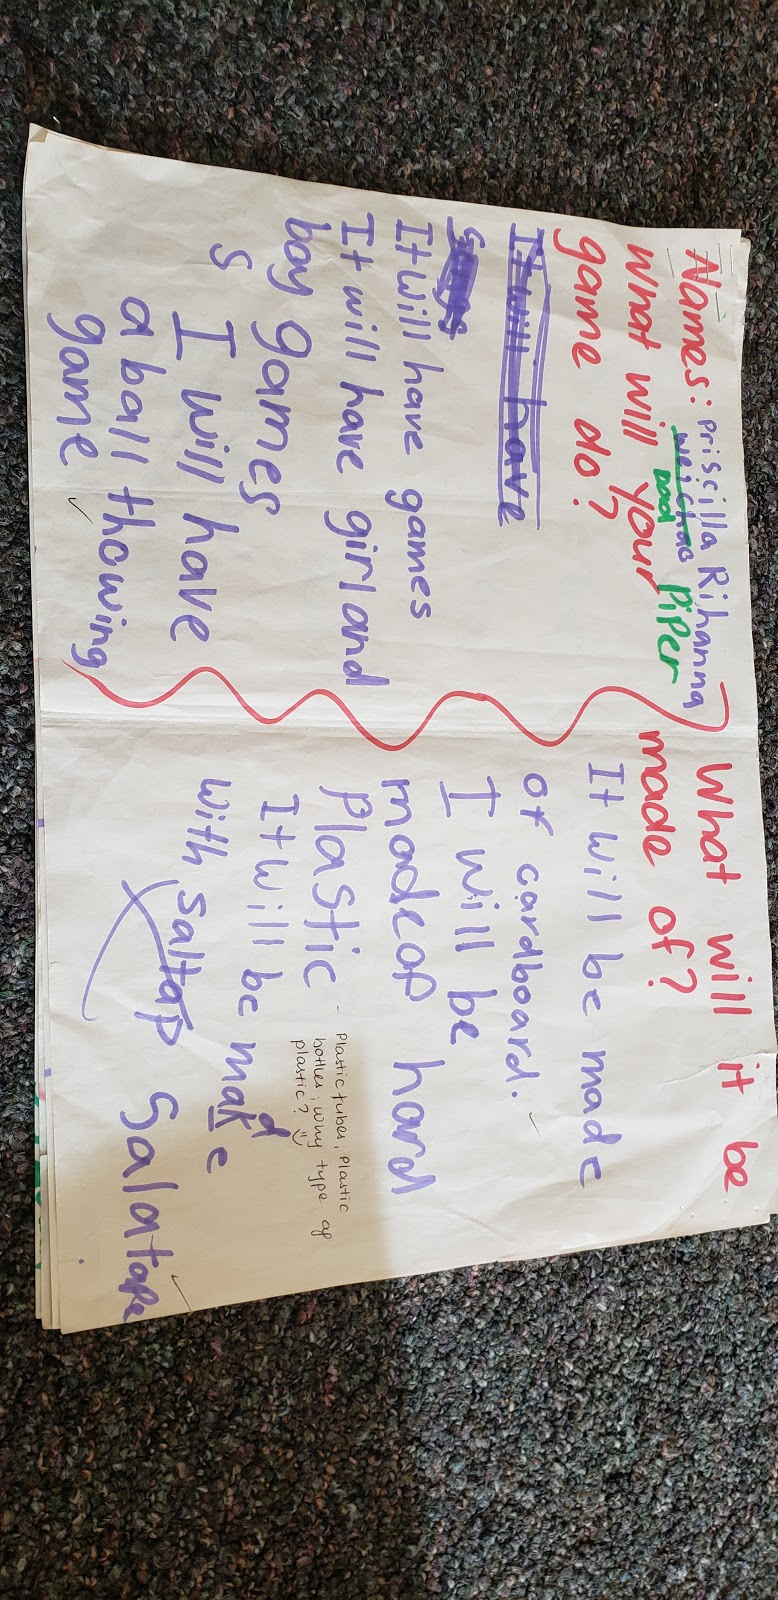 Names: Priscilla Rihanna
Piper
What will your
game do?
It will have
It will have games
It will have girl and
boy games
s I will have
a ball thowing
game
What will it be
made of?
It will be made
of cardboard.
I will be
madeop hard
Plastic - Plastic tuber, Plastic
bottles; why type of
plastic?
It will be made
with saltap Salatape